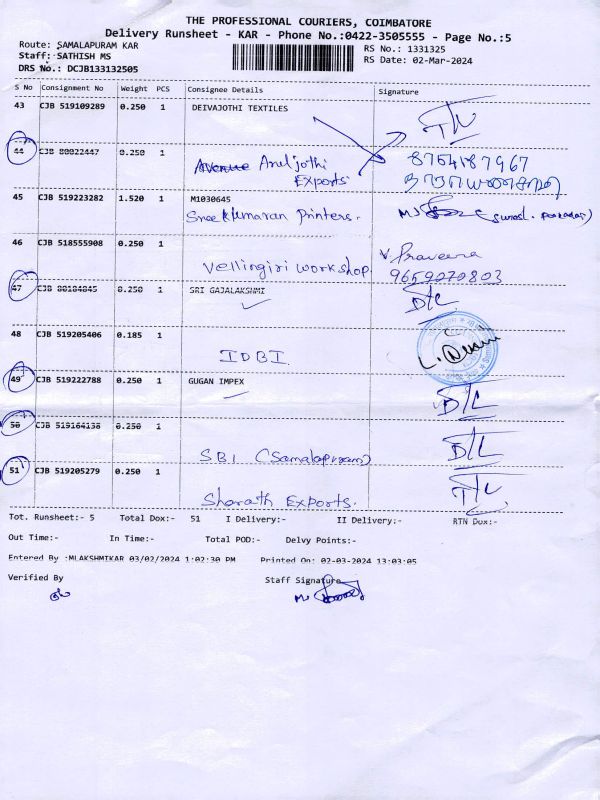 THE PROFESSIONAL COURIERS, COIMBATORE
Delivery Runsheet - KAR - Phone No.:0422-3505555 - Page No.:5
Route: SAMALAPURAM KAR
RS No.: 1331325
Staff: SATHISH MS
RS Date: 02-Mar-2024
DRS No.: DCJB133132505
S No Consignment No Weight PCS Consignee Details Signature
43 CJB 519109289 0.250 1 DEIVAJOTHI TEXTILES
44 CJB 80022447 0.250 1
Avenue Aruljothi 8754187967
Exports
45 CJB 519223282 1.520 1 M1030645
Sree Kumaran Printers.
46 CJB 518555908 0.250 1
V. Praveena
Vellingiri workshop. 9659270803
47 CJB 80184845 0.250 1 SRI GAJALAKSHMI D/C
48 CJB 519205406 0.185 1
IDBI
49 CJB 519222788 0.250 1 GUGAN IMPEX
D/L
50 CJB 519164138 0.250 1
SBI (Samalapuram) D/L
51 CJB 519205279 0.250 1
Sharath Exports.
Tot. Runsheet:- 5 Total Dox:- 51 I Delivery:- II Delivery:- RTN Dox:-
Out Time:- In Time:- Total POD:- Delvy Points:-
Entered By :MLAKSHMIKAR 03/02/2024 1:02:30 PM Printed On: 02-03-2024 13:03:05
Verified By Staff Signature